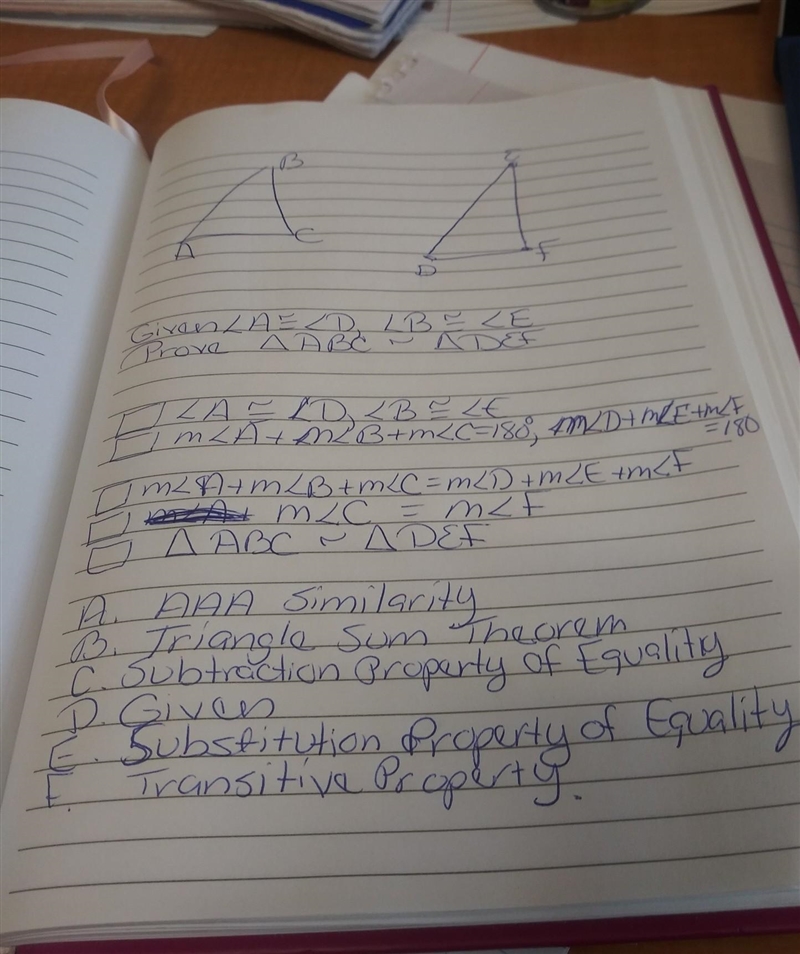 B
A
C
E
D
F
Given ∠A ≅ ∠D, ∠B ≅ ∠E
Prove △ABC ~ △DEF
∠A ≅ ∠D, ∠B ≅ ∠E
m∠A + m∠B + m∠C = 180°, m∠D + m∠E + m∠F
= 180
m∠A + m∠B + m∠C = m∠D + m∠E + m∠F
m∠C = m∠F
△ABC ~ △DEF
A. AAA Similarity
B. Triangle Sum Theorem
C. Subtraction Property of Equality
D. Given
E. Substitution Property of Equality
F. Transitive Property.